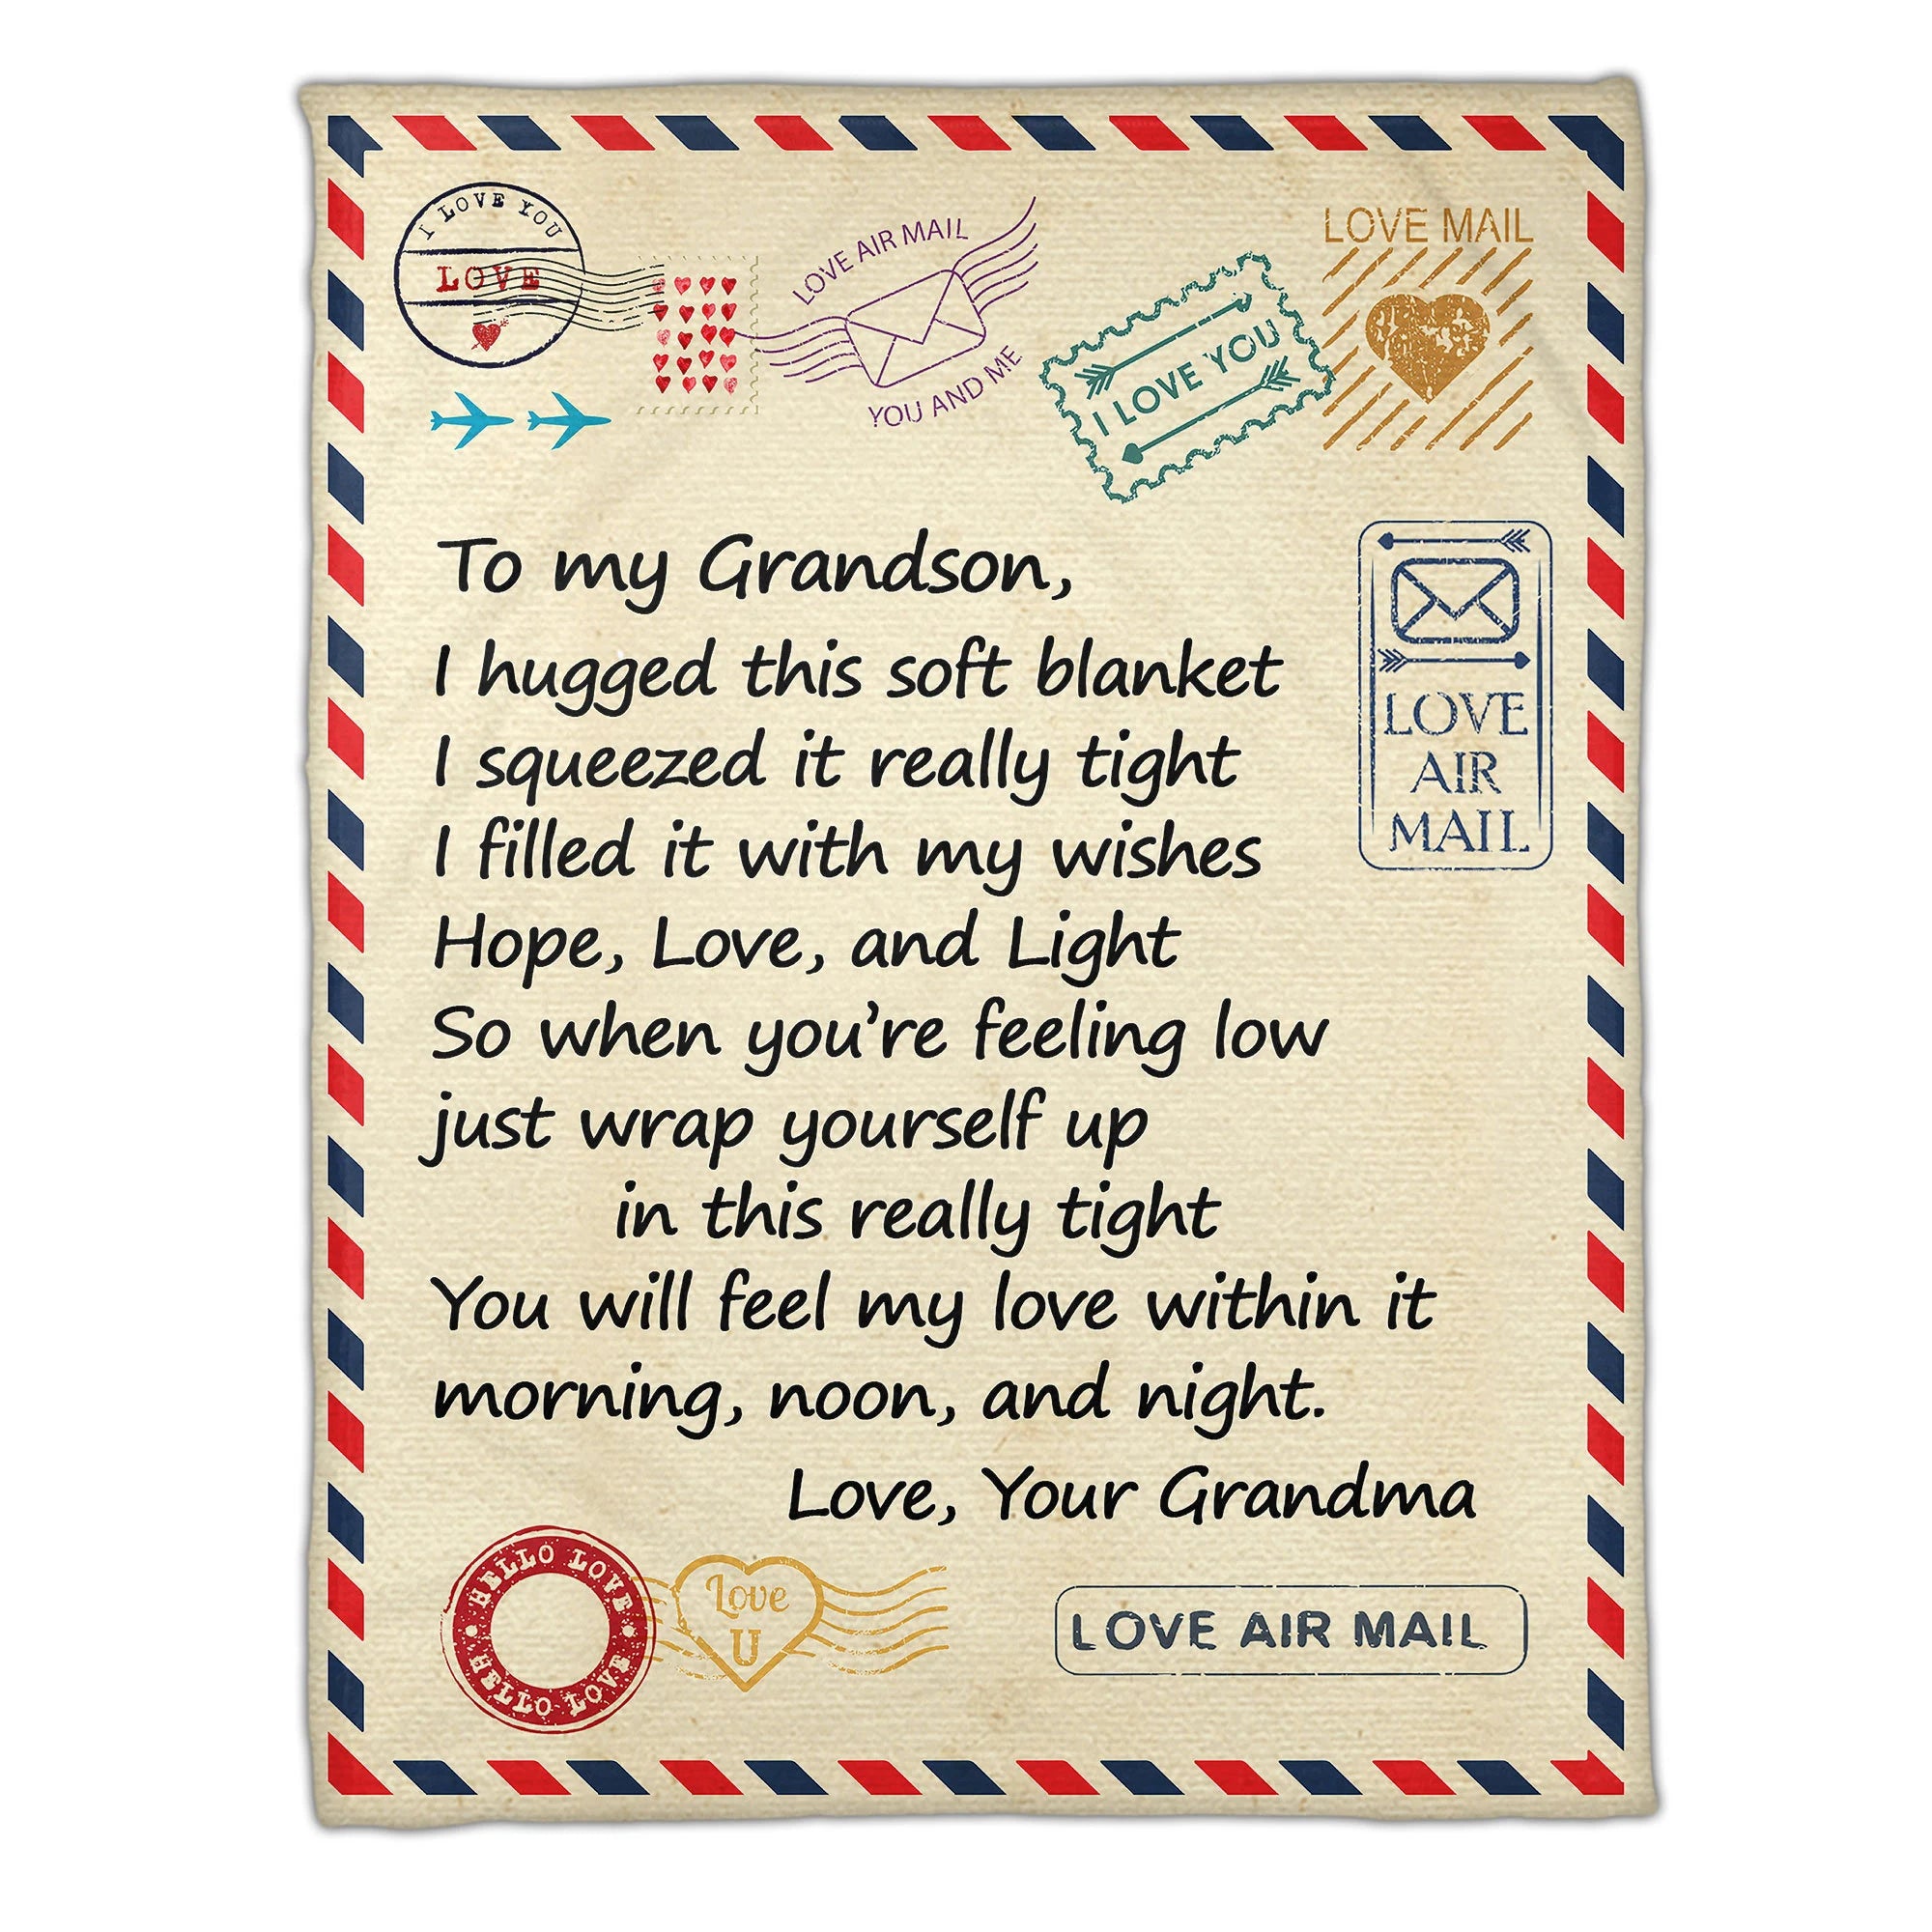 I LOVE YOU
LOVE
LOVE AIR MAIL
YOU AND ME
I LOVE YOU
LOVE MAIL
To my Grandson,
I hugged this soft blanket
I squeezed it really tight
I filled it with my wishes
Hope, Love, and Light
So when you're feeling low
just wrap yourself up
in this really tight
You will feel my love within it
morning, noon, and night.
Love, Your Grandma
LOVE
AIR
MAIL
HELLO LOVE
HELLO LOVE
Love
U
LOVE AIR MAIL